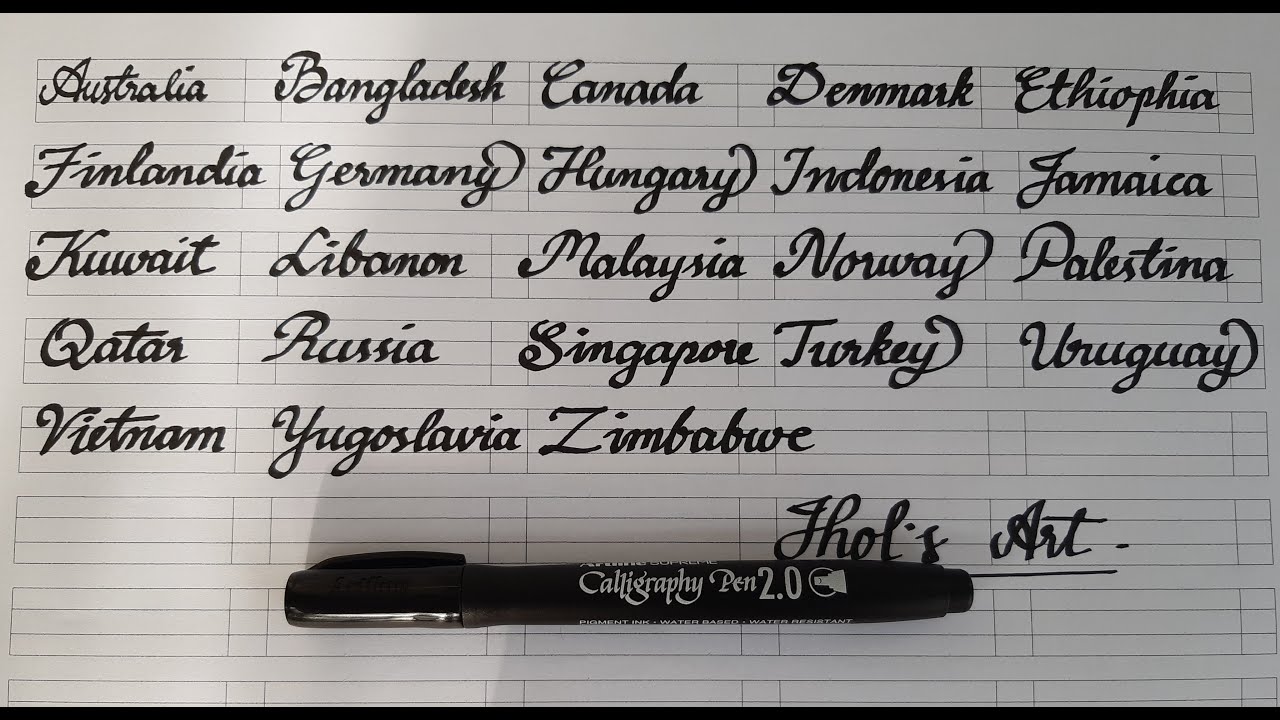 Australia Bangladesh Canada Denmark Ethiophia
Finlandia Germany Hungary Indonesia Jamaica
Kuwait Libanon Malaysia Norway Palestina
Qatar Russia Singapore Turkey Uruguay
Vietnam Yugoslavia Zimbabwe
Jhol's Art.
Artline SUPREME
Calligraphy Pen 2.0
PIGMENT INK · WATER BASED · WATER RESISTANT